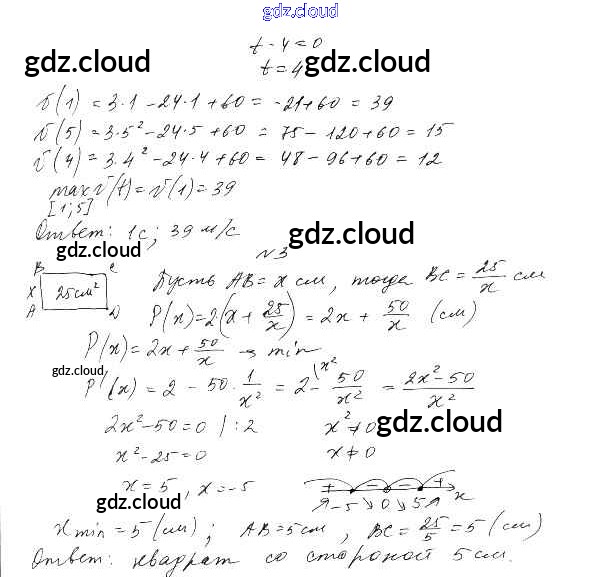 gdz.cloud
t - 4 = 0
gdz.cloud gdz.cloud
t = 4
v(1) = 3·1 - 24·1 + 60 = -21 + 60 = 39
v(5) = 3·5² - 24·5 + 60 = 75 - 120 + 60 = 15
v(4) = 3·4² - 24·4 + 60 = 48 - 96 + 60 = 12
max v(t) = v(1) = 39
[1; 5]
Ответ: 1с; 39 м/с
gdz.cloud №3 gdz.cloud
B C
X 25см² Пусть AB = x см, тогда BC = 25/x см
A D
P(x) = 2(x + 25/x) = 2x + 50/x (см)
P(x) = 2x + 50/x → min
gdz.cloud
P'(x) = 2 - 50 · 1/x² = 2 (x² - 50/x² = 2x² - 50/x²
2x² - 50 = 0 / : 2 x² ≠ 0
gdz.cloud
x² - 25 = 0 x ≠ 0
x = 5, x = -5 + - - + x
gdz.cloud gdz.cloud
-5 0 5
x min = 5 (см); AB = 5 см, BC = 25/5 = 5 (см)
Ответ: квадрат со стороной 5 см.